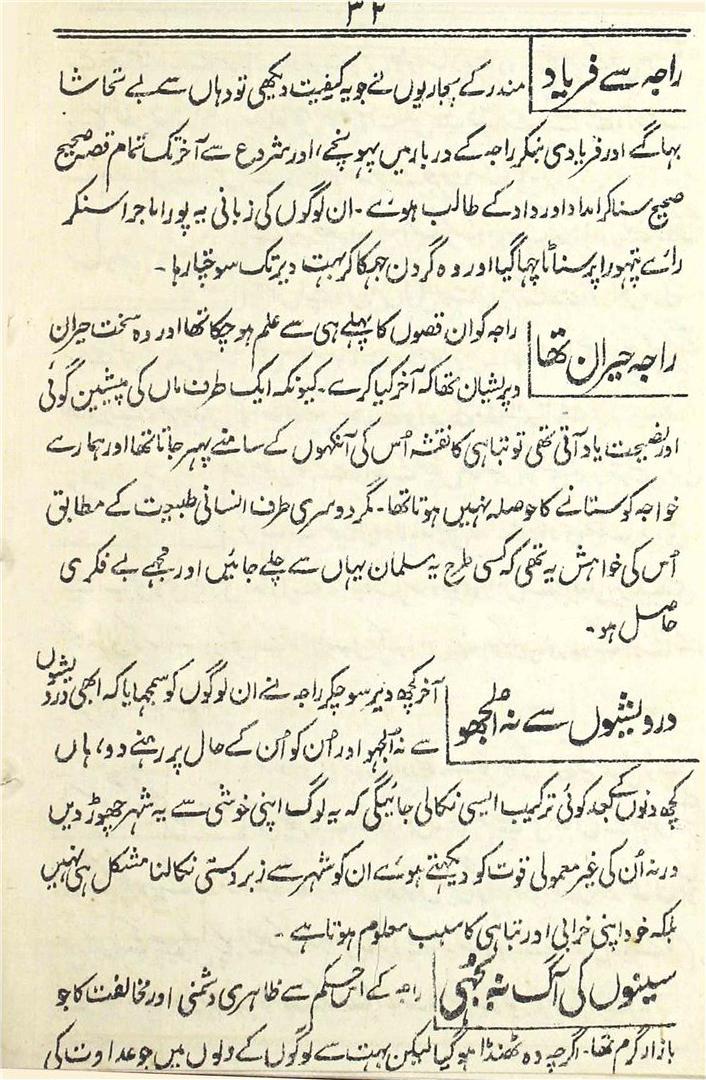 ۳۲
راجہ سے فریاد
مندر کے پجاریوں نے جو یہ کیفیت دیکھی تو وہاں سے بے تحاشا
بہاگے اور فریادی بنکر راجہ کے دربار میں پہونچے، اور شروع سے آخر تک تمام قصہ صحیح
صحیح سنا کر امداد اور داد کے طالب ہوئے۔ ان لوگوں کی زبانی یہ پورا ماجرا سنکر
رائے پتہورا پر سناٹا چہا گیا اور وہ گردن جہکا کر بہت دیر تک سوچتا رہا۔
راجہ حیران تھا
راجہ کو ان قصوں کا پہلے ہی سے علم ہو چکا تھا اور وہ سخت حیران
و پریشان تھا کہ آخر کیا کرے۔ کیونکہ ایک طرف ماں کی پیشین گوئی
اور نصیحت یاد آتی تھی تو تباہی کا نقشہ اُس کی آنکہوں کے سامنے پہر جاتا تھا اور ہمارے
خواجہ کو ستانے کا حوصلہ نہیں ہوتا تھا۔ مگر دوسری طرف انسانی طبیعت کے مطابق
اُس کی خواہش یہ تھی کہ کسی طرح یہ مسلمان یہاں سے چلے جائیں اور مجہے بے فکری
حاصل ہو۔
درویشوں سے نہ اُلجھو
آخر کچھ دیر سوچکر راجہ نے ان لوگوں کو سمجہایا کہ ابھی درویشوں
سے نہ اُلجہو اور اُن کو اُن کے حال پر رہنے دو، ہاں
کچھ دنوں کے بعد کوئی ترکیب ایسی نکالی جائیگی کہ یہ لوگ اپنی خوشی سے یہ شہر چھوڑ دیں
ورنہ اُن کی غیر معمولی قوت کو دیکہتے ہوئے ان کو شہر سے زبردستی نکالنا مشکل ہی نہیں
بلکہ خود اپنی خرابی اور تباہی کا سبب معلوم ہوتا ہے۔
سینوں کی آگ نہ بُجہی
راجہ کے اس حکم سے ظاہری دشمنی اور مخالفت کا جو
بازار گرم تھا۔ اگرچہ وہ ٹھنڈا ہو گیا لیکن بہت سے لوگوں کے دلوں میں جو عداوت کی